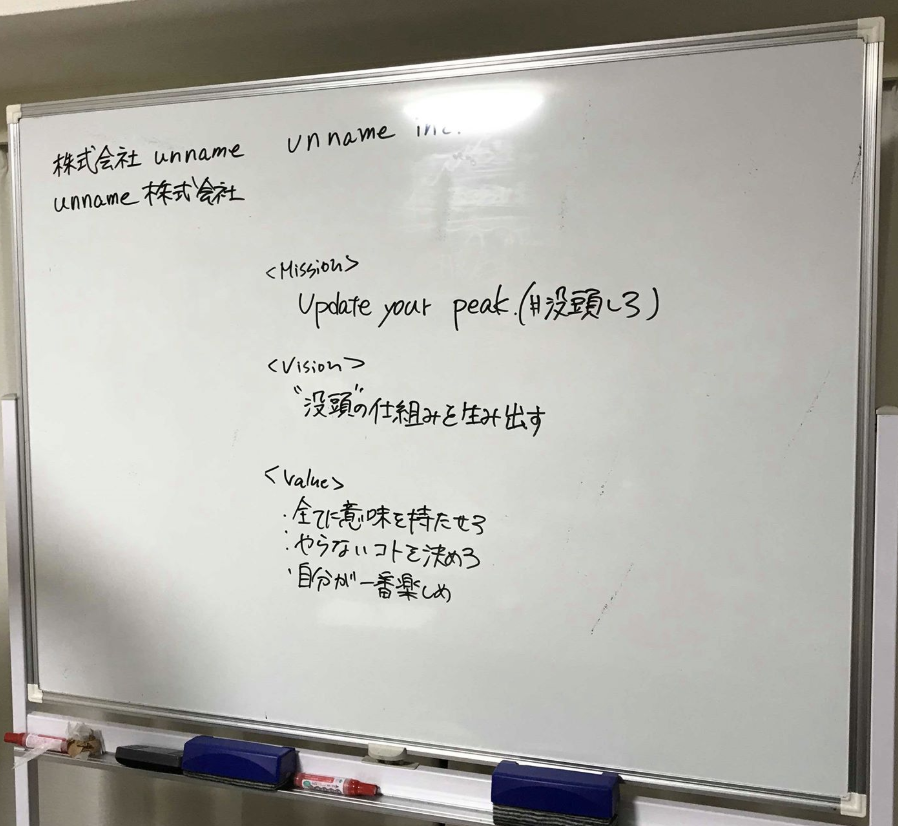 株式会社 unname unname inc.
unname 株式会社
<Mission>
Update your peak.(#没頭しろ)
<Vision>
"没頭"の仕組みを生み出す
<Value>
・全てに意味を持たせろ
・やらないコトを決めろ
・自分が一番楽しめ